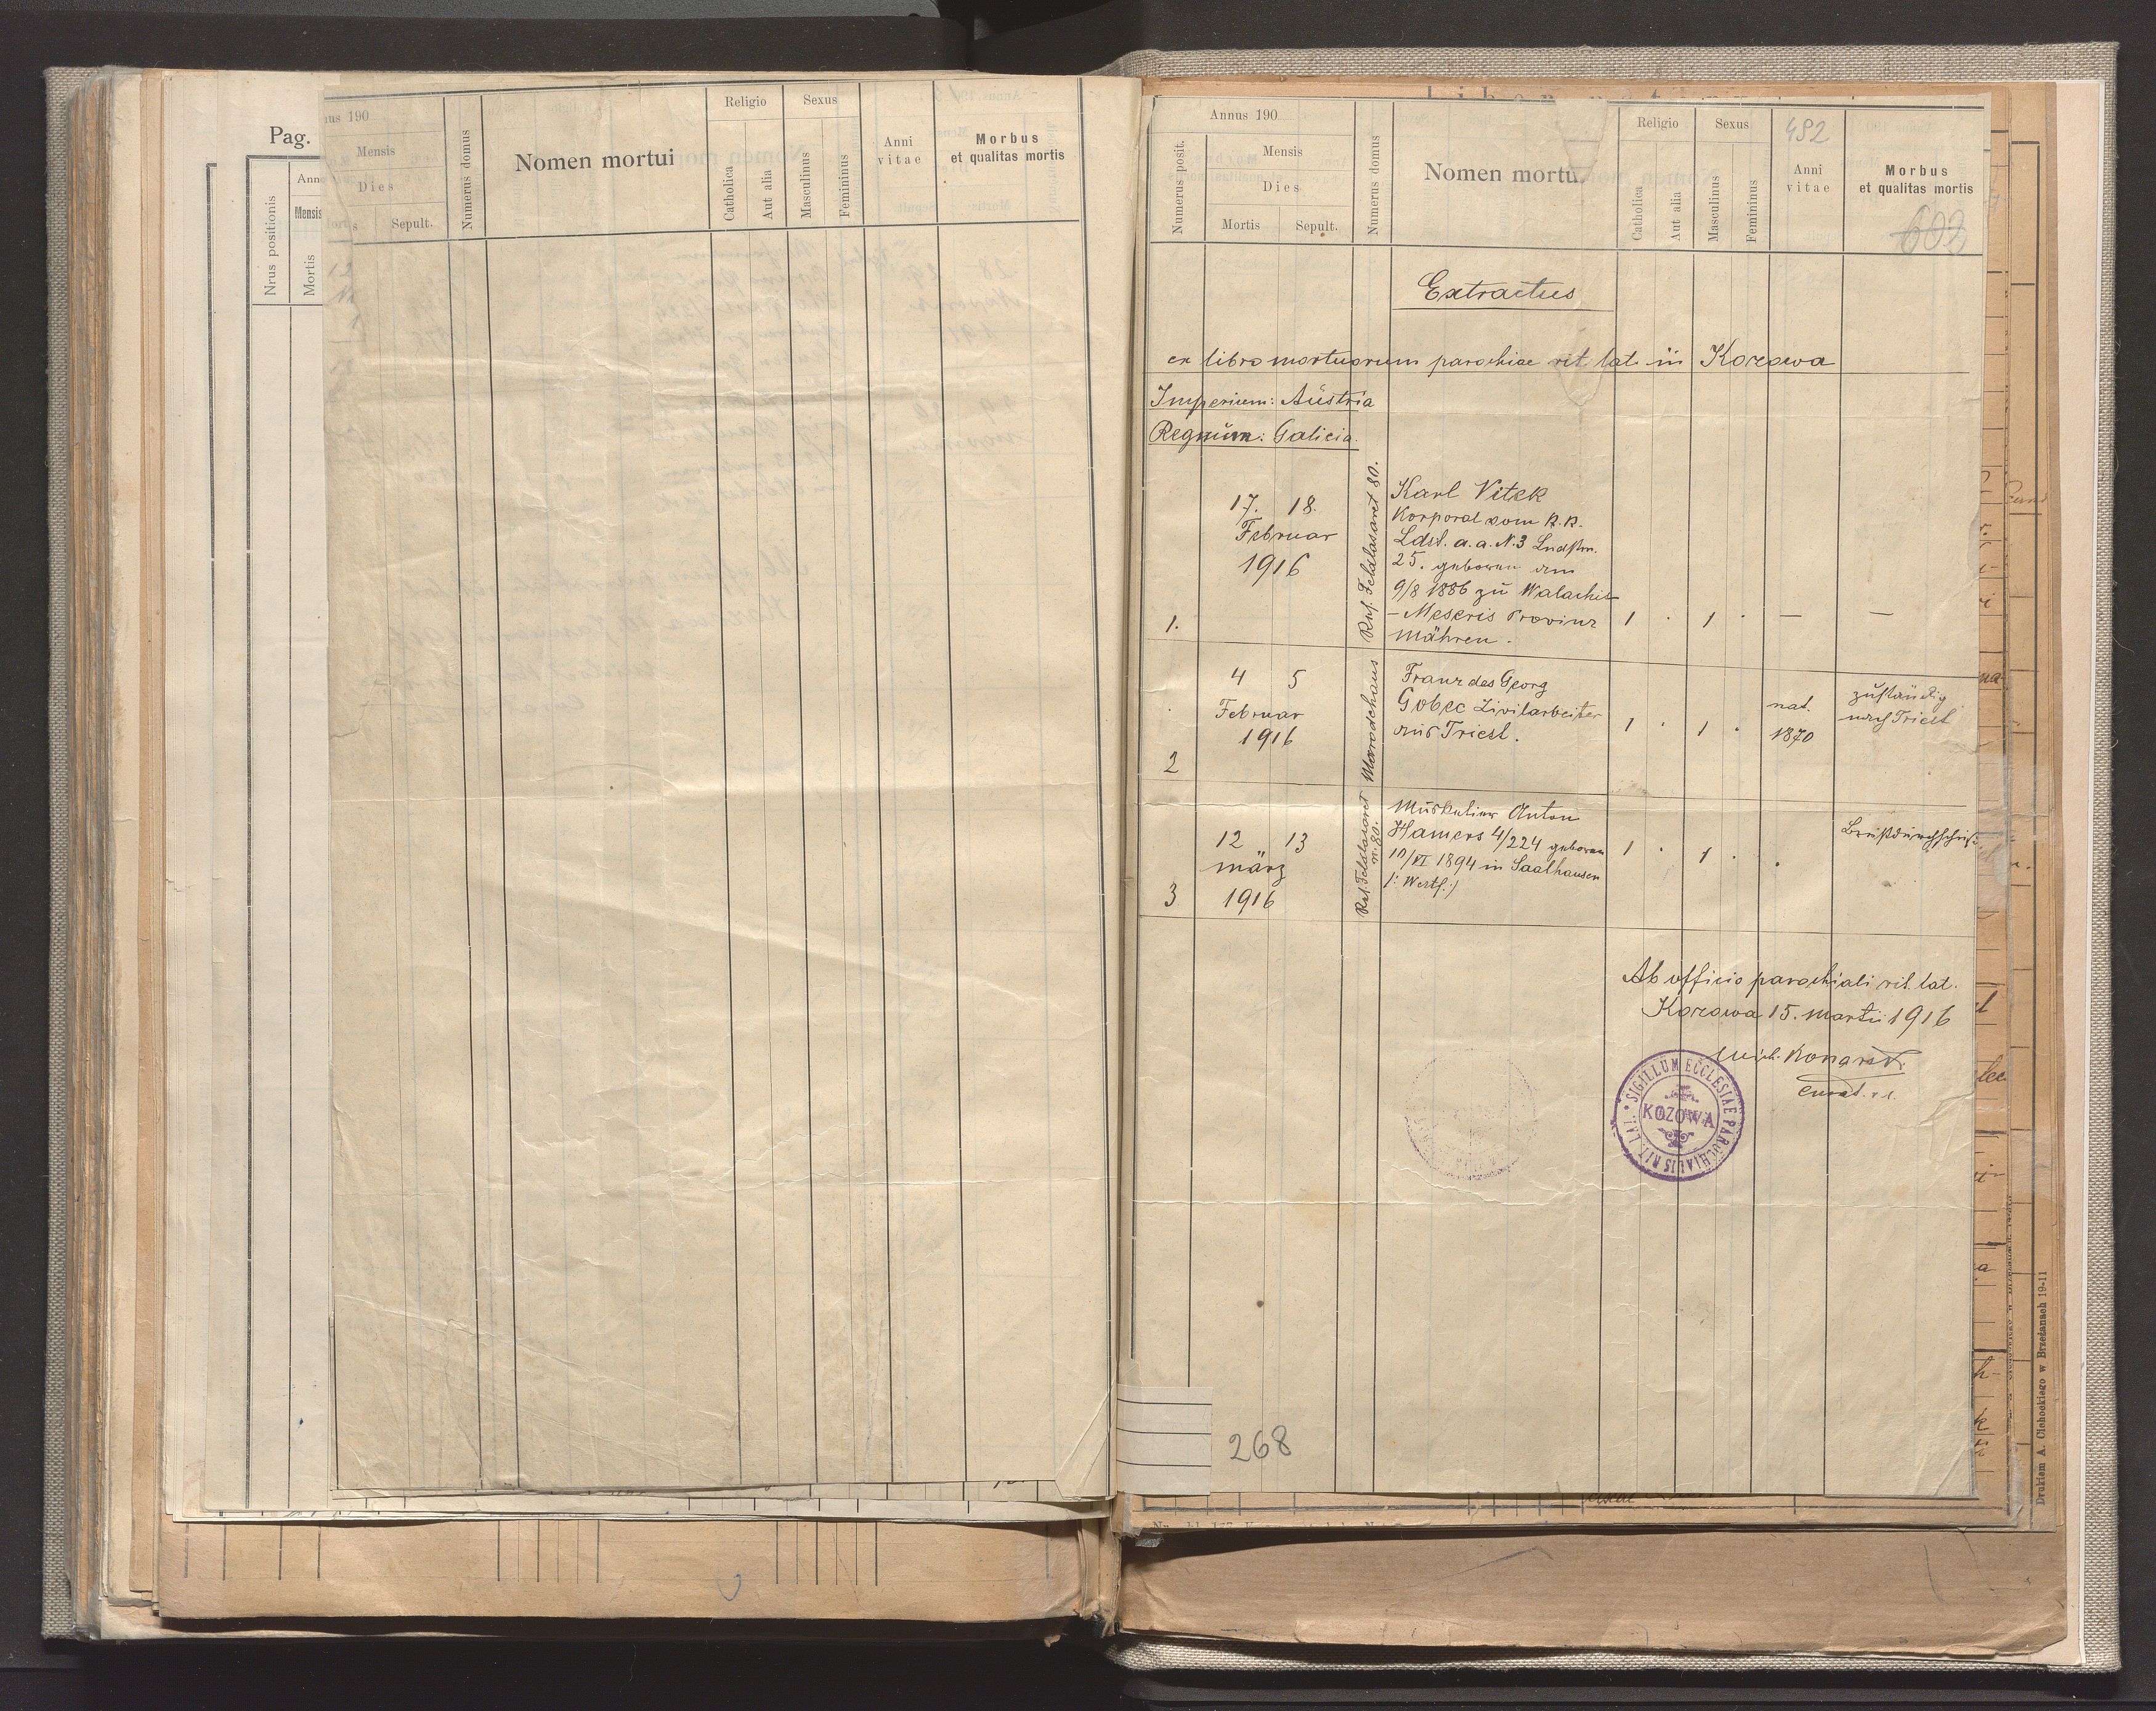 Pag.
Nrus positionis
Mensis
Mortis
nus 190
Mensis
Dies
Sepult.
Numerus domus
Nomen mortui
Religio
Catholica
Aut alia
Sexus
Masculinus
Femininus
Anni
vitae
Morbus
et qualitas mortis
Numerus posit.
Annus 190
Mensis
Dies
Mortis
Sepult.
Numerus domus
Nomen mortu
Religio
Catholica
Aut alia
Sexus
Masculinus
Femininus
492
Anni
vitae
Morbus
et qualitas mortis
602
Extractus
ex libro mortuorum parochiae rit. lat. in Kozowa
Imperium: Aŭstria
Regnŭm: Galicia.
1.
17. 18.
Februar
1916
Ruß. Feldlasaret 80.
Karl Vitek
Korporal vom K.K.
Ldst. a. a. N. 3 Lndstm.
25. geboren am
9/8 1886 zu Walachis
- Meseris Provinz
Mähren.
1 . 1 . — —
2
4 5
Februar
1916
Marodehaus
Franz des Georg
Gobec Zivilarbeiter
aus Triest.
1 . 1 .
nat.
1870
zuständig
nach Triest
3
12 13
März
1916
Ruß. Feldlasaret
n. 80.
Muskutier Anton
Hamers 4/224 geboren
10/VI 1894 in Saalhausen
/: Westf. :/
1 . 1 . .
Ab officio parochiali rit. lat.
Kozowa 15. martii 1916
Mich. Konarski
curat. r. l.
SIGILLUM ECCLESIAE PAROCHIALIS RIT. LAT.
KOZOWA
268
Drukiem A. Cichockiego w Brzeżanach 19-11